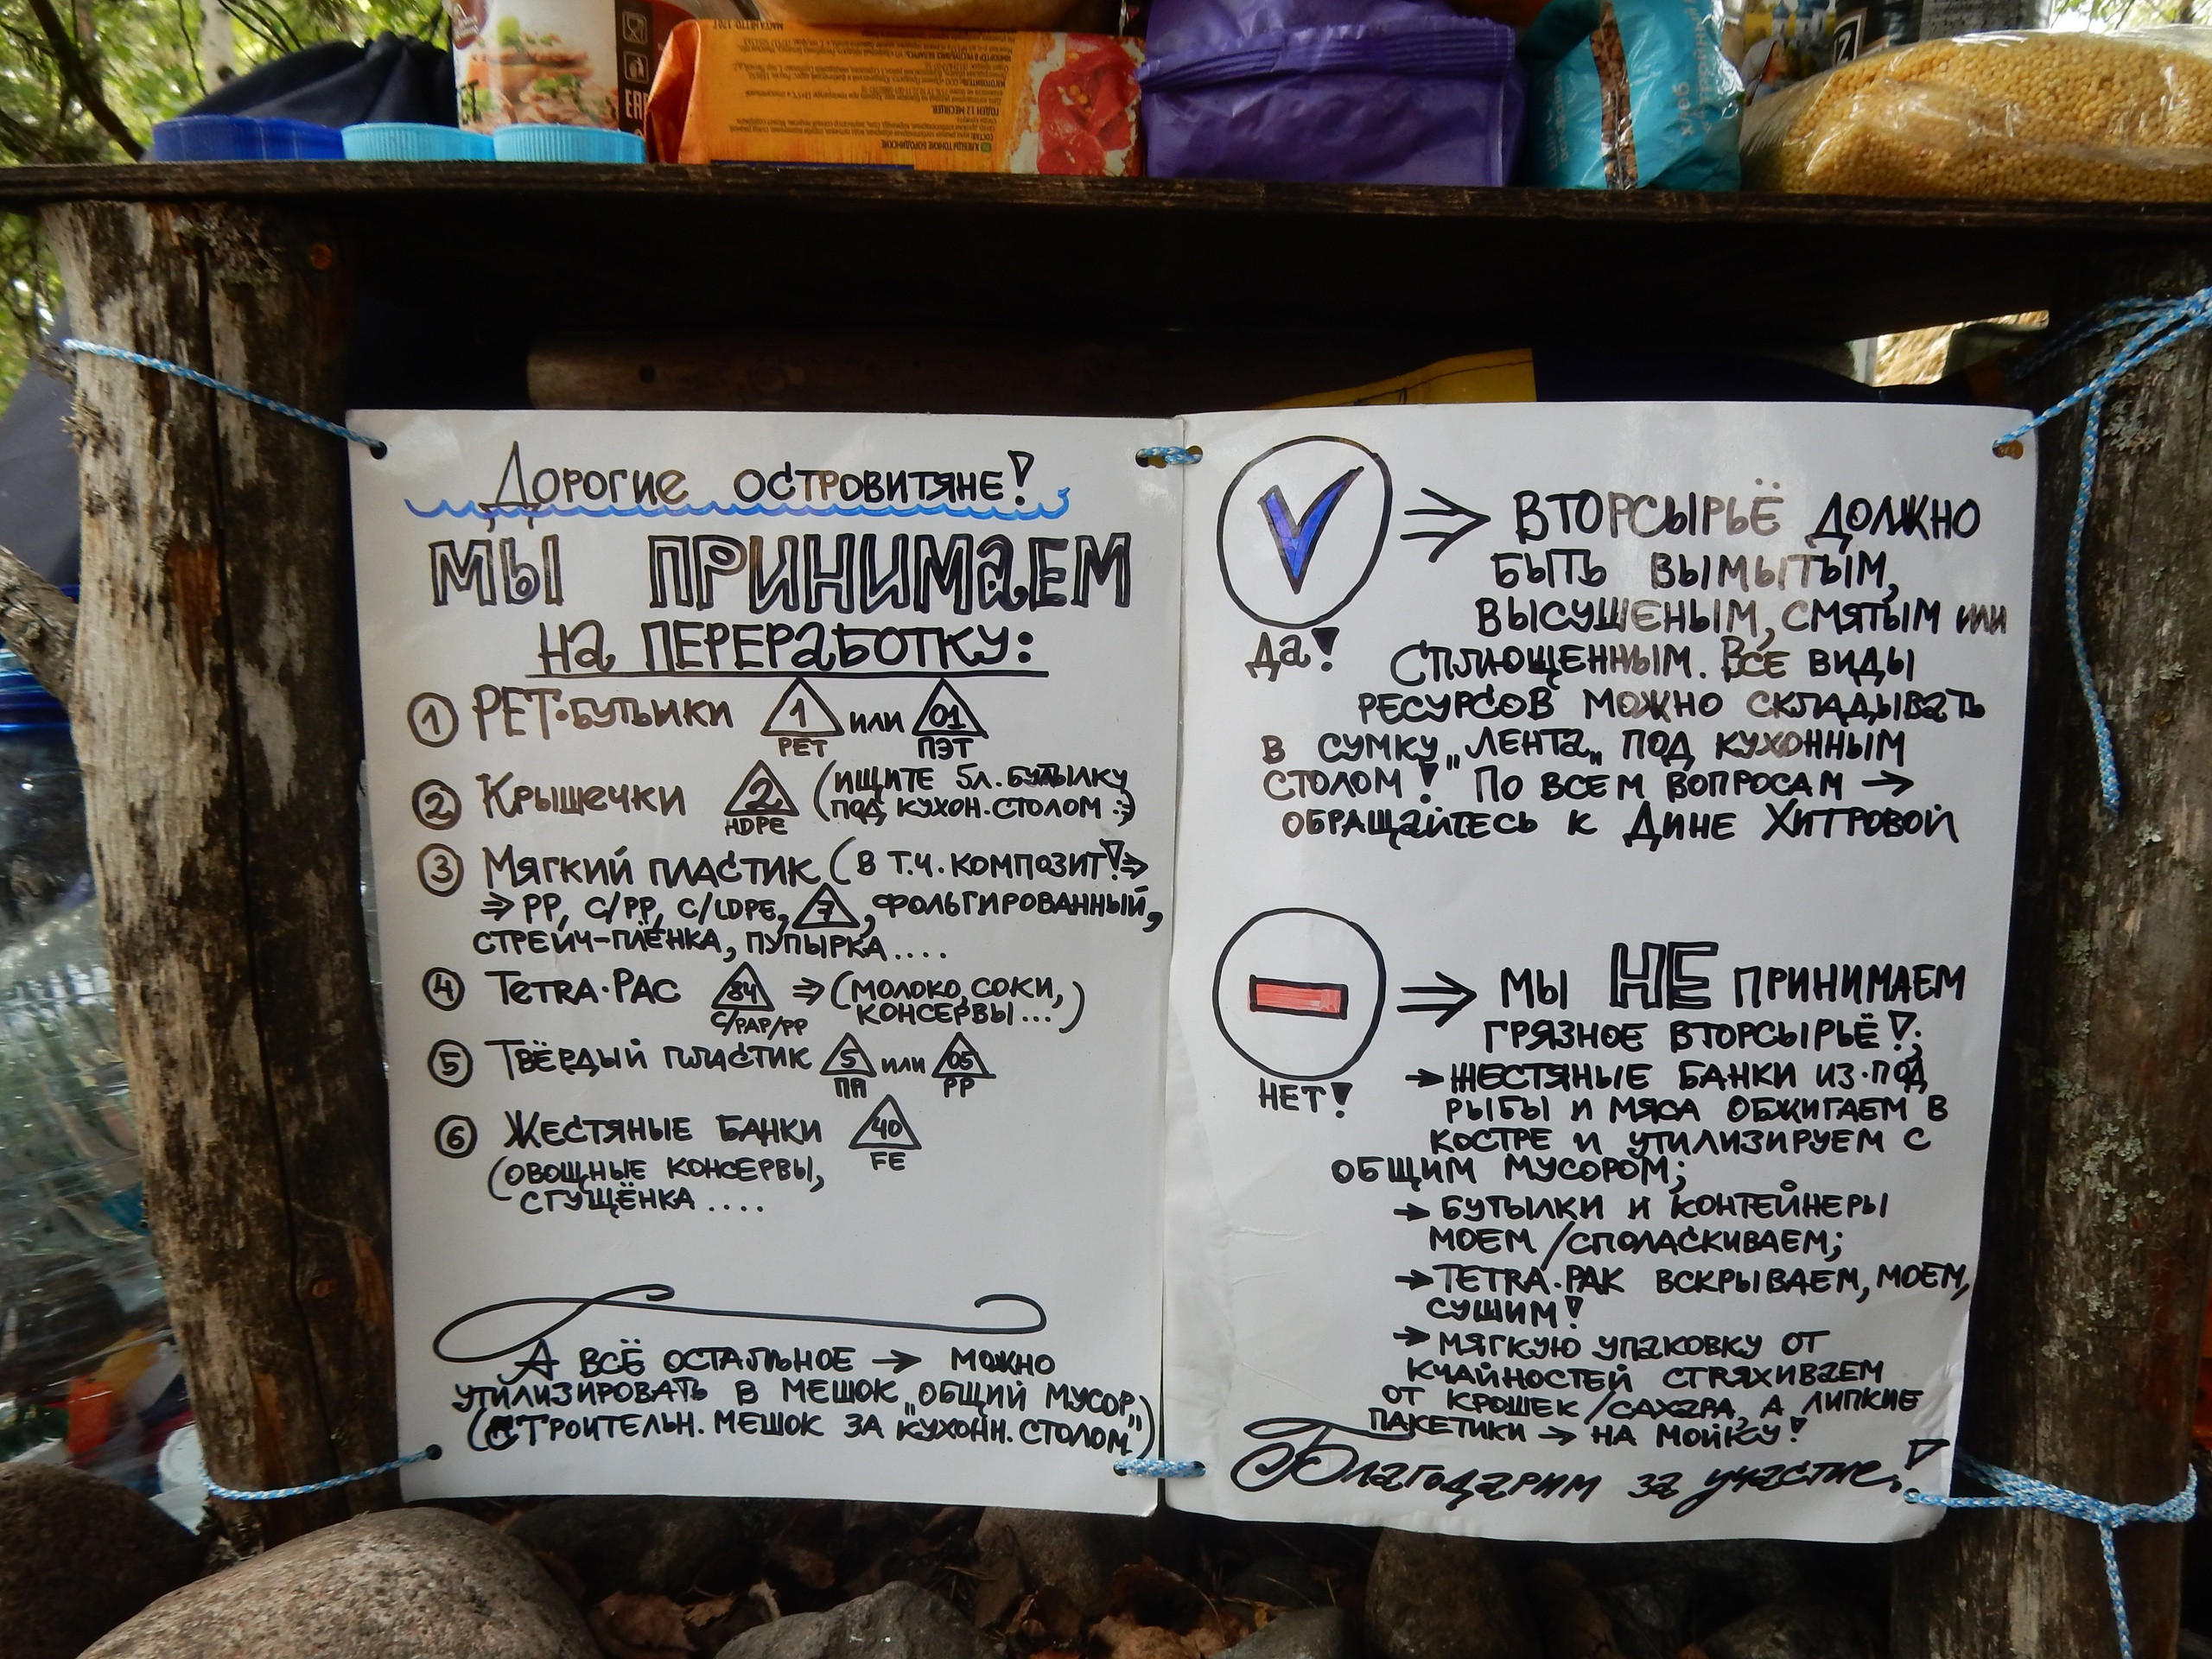 ЕАС
Дорогие островитяне!
МЫ ПРИНИМАЕМ
НА ПЕРЕРАБОТКУ:
① PET-бутылки 1 или 01
PET ПЭТ
② Крышечки 2 (ищите 5л. бутылку
HDPE под кухон. столом :)
③ Мягкий пластик (в т.ч. композит! ⇒
⇒ PP, C/PP, C/LDPE, 7, фольгированный,
стрейч-плёнка, пупырка....
④ Tetra-Pac 84 ⇒ (молоко, соки,
C/PAP/PP консервы...)
⑤ Твёрдый пластик 5 или 05
ПП PP
⑥ Жестяные банки 40
FE
(овощные консервы,
сгущёнка....
А всё остальное → можно
утилизировать в мешок „общий мусор„
(строительн. мешок за кухонн. столом)
⇒ Вторсырьё должно
быть вымытым,
высушеным, смятым или
Да! сплющенным. Все виды
ресурсов можно складывать
в сумку „Лента„ под кухонным
столом! По всем вопросам →
обращайтесь к Дине Хитровой
⇒ мы НЕ принимаем
грязное вторсырьё!;
Нет! → жестяные банки из-под
рыбы и мяса обжигаем в
костре и утилизируем с
общим мусором;
→ бутылки и контейнеры
моем/споласкиваем;
→ Tetra-Pak вскрываем, моем,
сушим!
→ мягкую упаковку от
кчайностей стряхиваем
от крошек/сахара, а липкие
пакетики → на мойку!
Благодарим за участие!